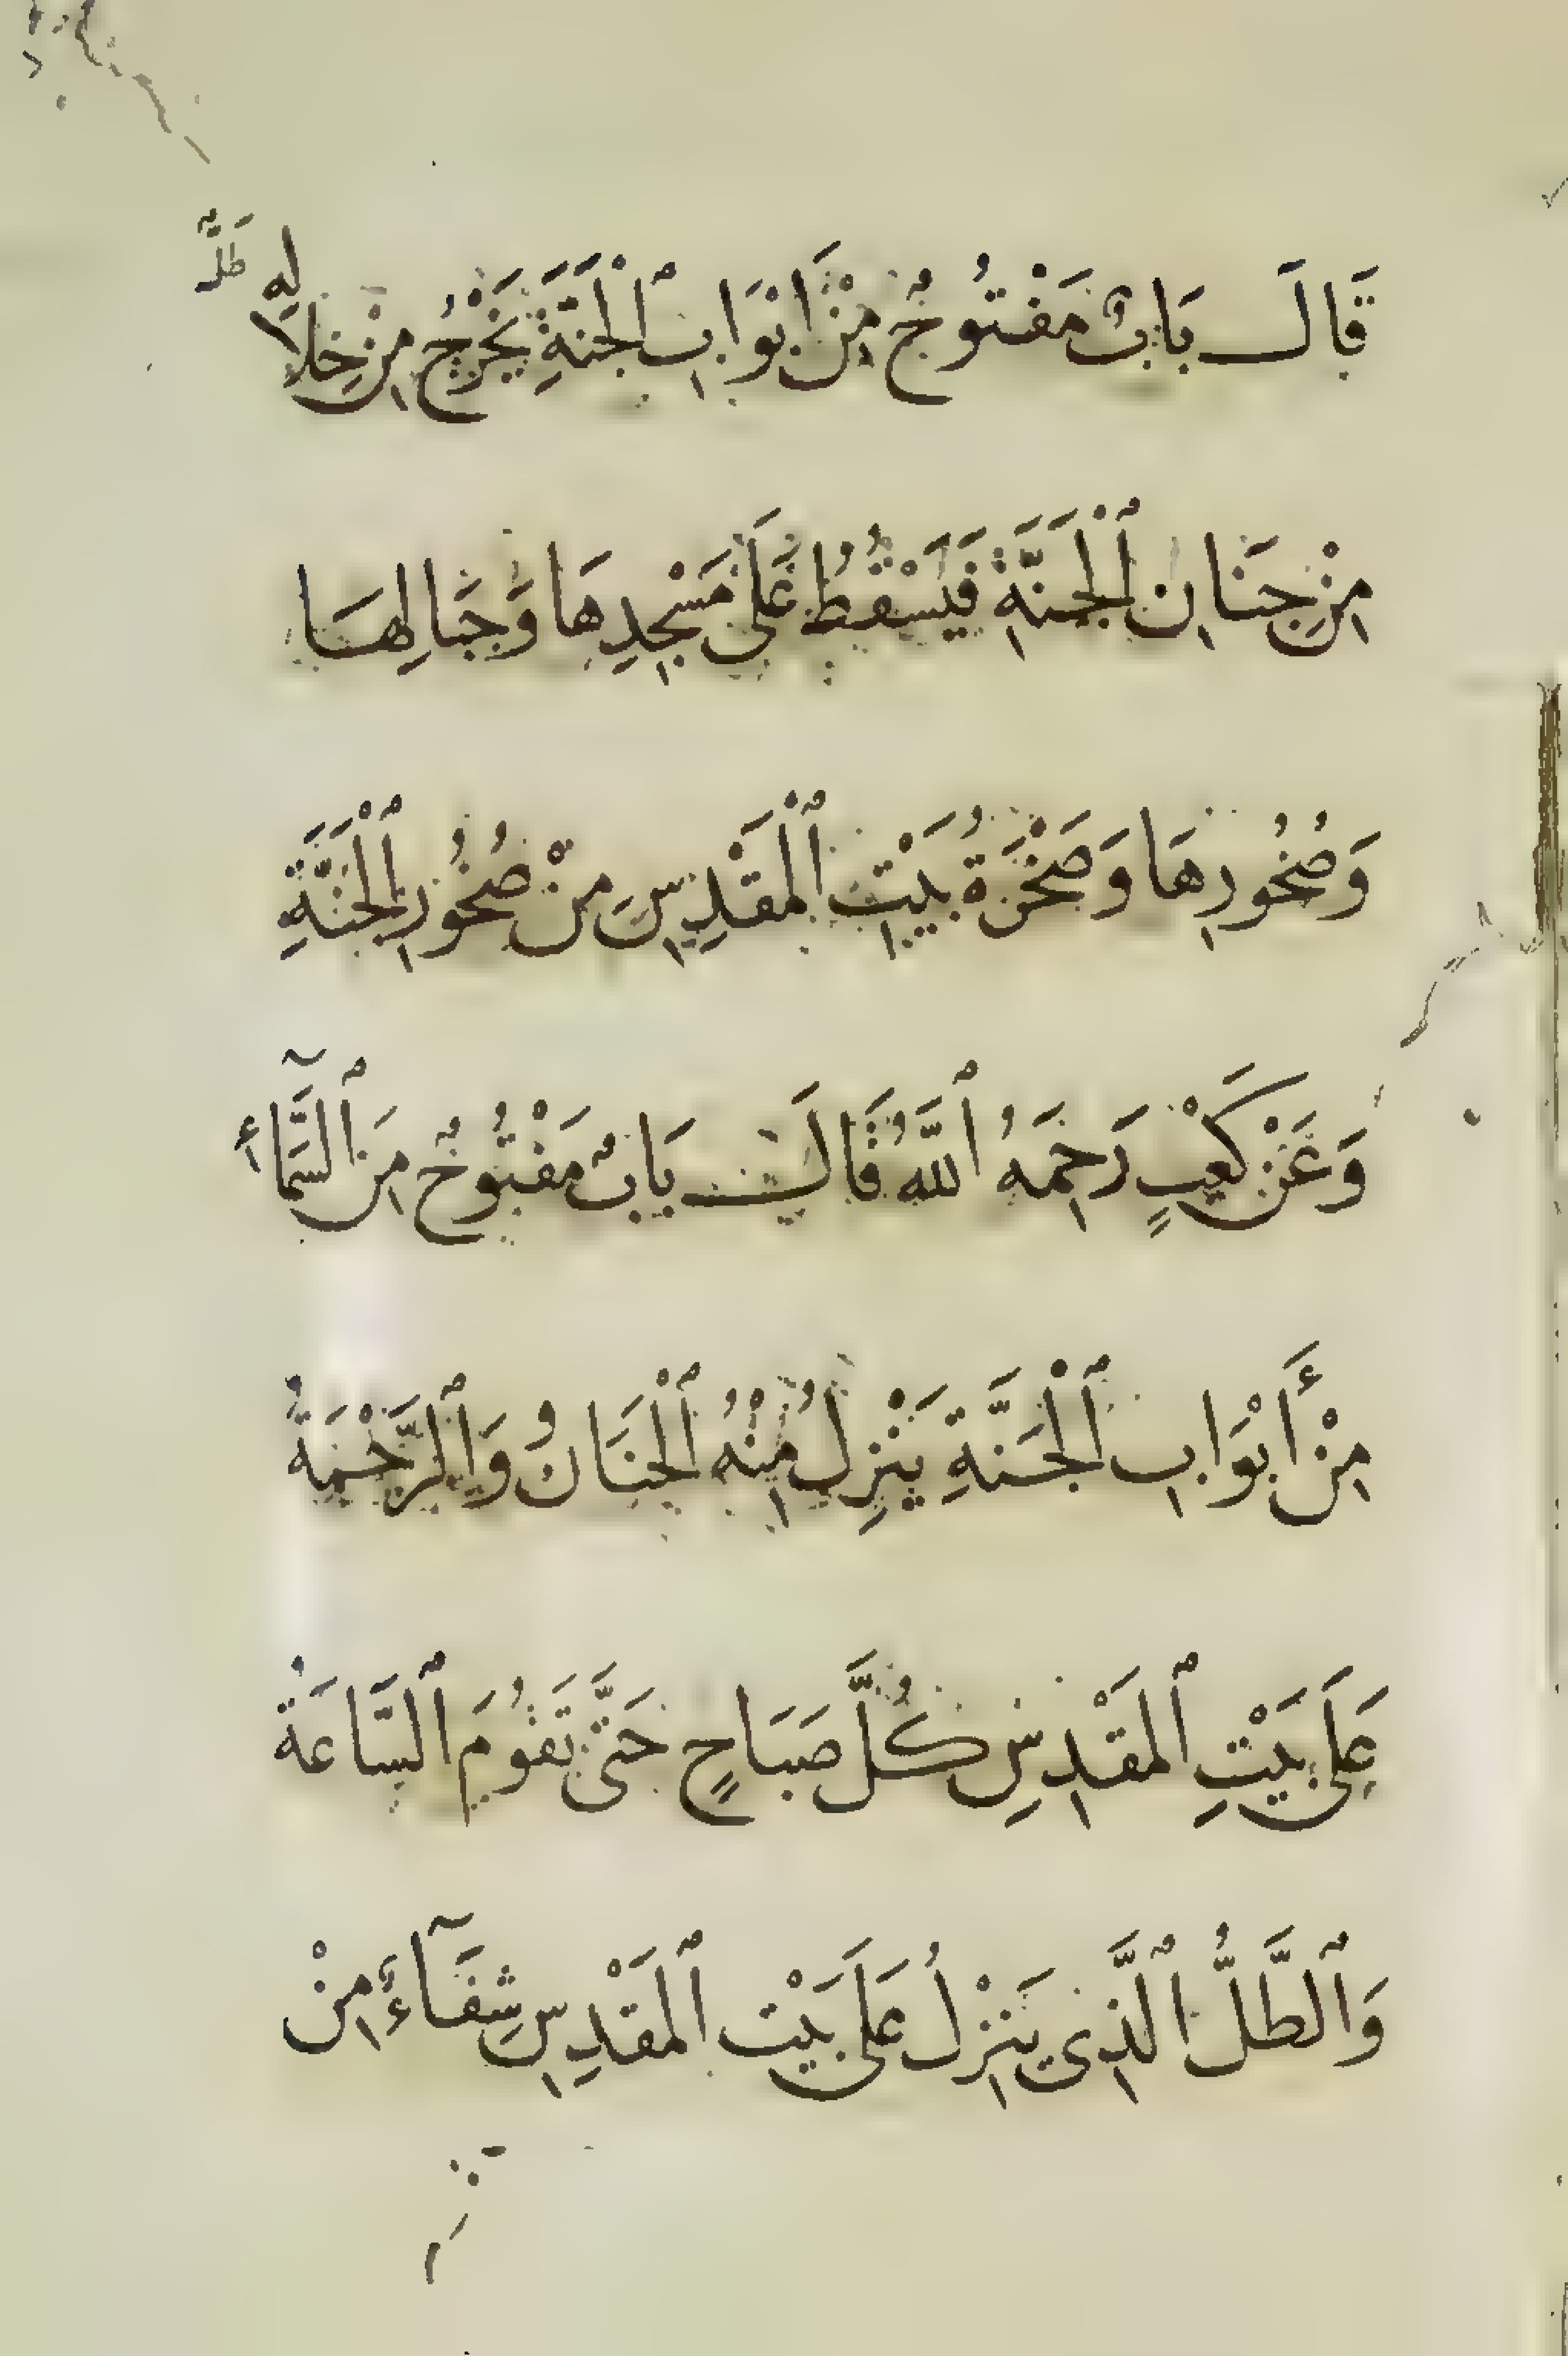 قَالَ بَابٌ مَفْتُوحٌ مِنْ أَبْوَابِ ٱلْجَنَّةِ يَخْرُجُ مِنْ خِلَالِهِ طَلٌّ
مِنْ جَنَانِ ٱلْجَنَّةِ فَيَسْقُطُ عَلَى مَسْجِدِهَا وَجِبَالِهَا
وَصُخُورِهَا وَصَخْرَةُ بَيْتِ ٱلْمَقْدِسِ مِنْ صُخُورِ ٱلْجَنَّةِ
وَعَنْ كَعْبٍ رَحِمَهُ ٱللَّهُ قَالَ بَابٌ مَفْتُوحٌ مِنَ ٱلسَّمَآءِ
مِنْ أَبْوَابِ ٱلْجَنَّةِ يَنْزِلُ مِنْهُ ٱلْحَنَانُ وَٱلرَّحْمَةُ
عَلَى بَيْتِ ٱلْمَقْدِسِ كُلَّ صَبَاحٍ حَتَّى تَقُومَ ٱلسَّاعَةُ
وَٱلطَّلُّ ٱلَّذِي يَنْزِلُ عَلَى بَيْتِ ٱلْمَقْدِسِ شِفَآءٌ مِنْ